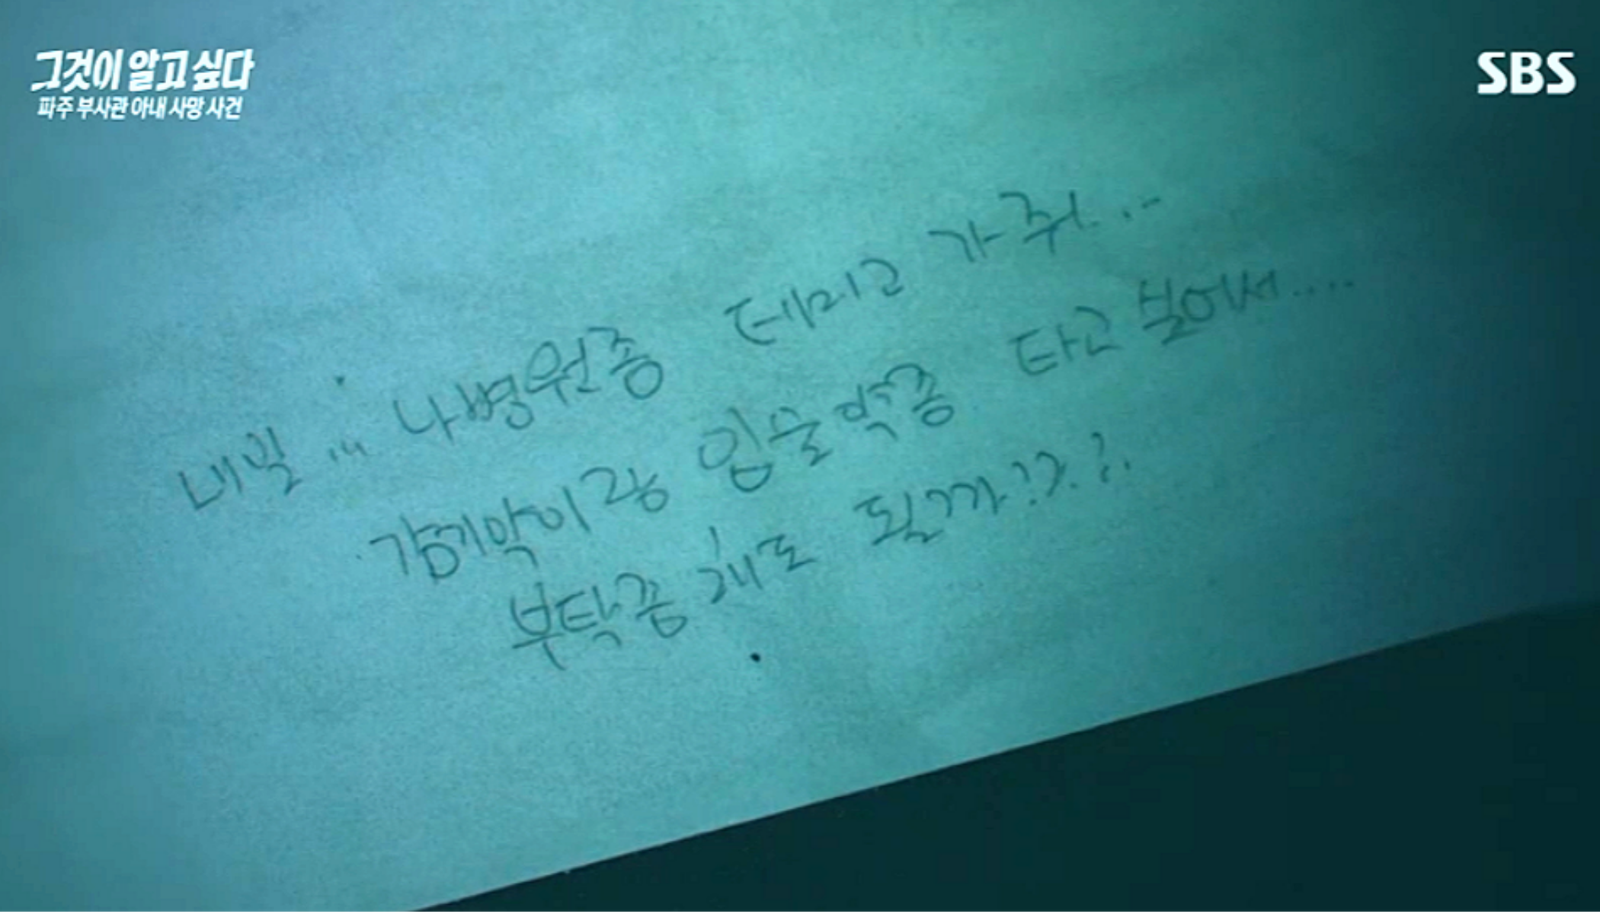 그것이 알고 싶다
파주 부사관 아내 사망 사건
SBS
내일 ... 나 병원좀 데리고 가 줘....
감기약이랑 입술약좀 타고 싶어서....
부탁좀 해도 될까?????